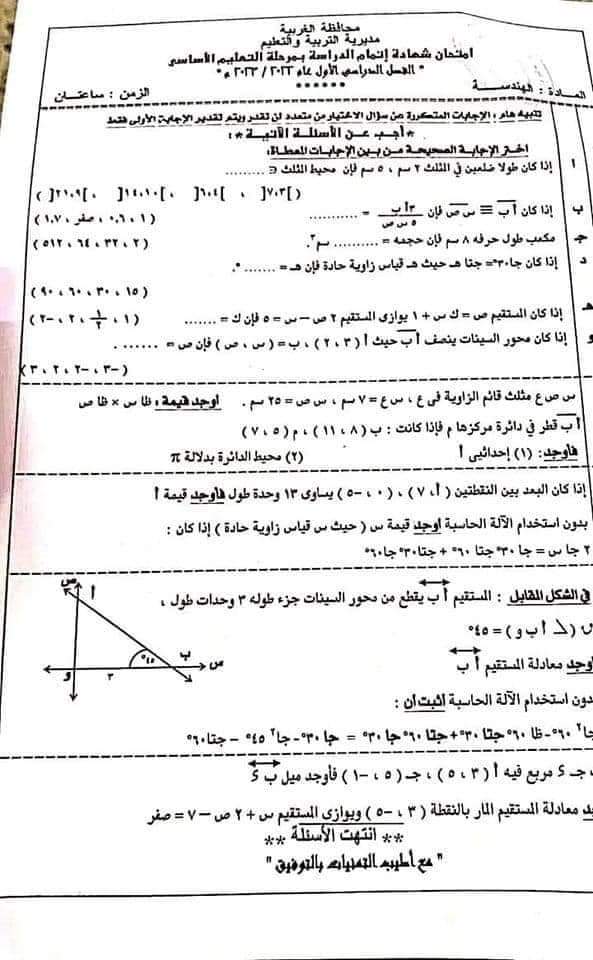 محافظة الغربية
مديرية التربية والتعليم
امتحان شهادة إتمام الدراسة بمرحلة التعليم الأساسى
" الفصل الدراسي الأول عام ٢٠٢٢ / ٢٠٢٣ م "
المادة : الهندسة ****** الزمن : ساعتان
تنبيه هام : الإجابات المتكررة عن سؤال الاختيار من متعدد لن تقدر ويتم تقدير الإجابة الأولى فقط
* أجب عن الأسئلة الآتية * :
اختر الإجابة الصحيحة من بين الإجابات المعطاة:
أ إذا كان طولا ضلعين في المثلث ٢ سم ، ٥ سم فإن محيط المثلث ∈ ........
( ]٧،٣[ ، ]٦،٤[ ، ]١٤،١٠[ ، ]٢١،٩[ )
ب إذا كان أ ب ≡ س ص فإن ٣ أ ب / ٥ س ص = ............ ( ١ ، ٠,٦ ، صفر ، ١,٧ )
جـ مكعب طول حرفه ٨ سم فإن حجمه = .......... سم٣. ( ٢ ، ٣٢ ، ٦٤ ، ٥١٢ )
د إذا كان جا٣٠° = جتا هـ حيث هـ قياس زاوية حادة فإن هـ = ....... °.
( ١٥ ، ٣٠ ، ٦٠ ، ٩٠ )
هـ إذا كان المستقيم ص = ك س + ١ يوازى المستقيم ٢ ص – س = ٥ فإن ك = ....... ( ١ ، ١/٢ ، ٢ ، -٢ )
و إذا كان محور السينات ينصف أ ب حيث أ ( ٣ ، ٢ ) ، ب = ( س ، ص ) فإن ص = ...... .
( -٣ ، -٢ ، ٢ ، ٣ )
س ص ع مثلث قائم الزاوية فى ع ، س ع = ٧ سم ، س ص = ٢٥ سم . أوجد قيمة : ظا س × ظا ص
أ ب قطر في دائرة مركزها م فإذا كانت : ب ( ٨ ، ١١ ) ، م ( ٥ ، ٧ )
فأوجد : (١) إحداثيى أ (٢) محيط الدائرة بدلالة π
إذا كان البعد بين النقطتين ( أ ، ٧ ) ، ( ٠ ، -٥ ) يساوى ١٣ وحدة طول فأوجد قيمة أ
بدون استخدام الآلة الحاسبة أوجد قيمة س ( حيث س قياس زاوية حادة ) إذا كان :
٢ جا س = جا ٣٠° جتا ٦٠° + جتا٣٠° جا٦٠°
فى الشكل المقابل : المستقيم أ ب يقطع من محور السينات جزء طوله ٣ وحدات طول ،
( ∠ أ ب و ) = ٤٥°
أوجد معادلة المستقيم أ ب
بدون استخدام الآلة الحاسبة أثبت أن :
جا٢ ٦٠° - ظا ٦٠° جتا ٣٠° + جتا ٦٠° جا ٣٠° = جا ٣٠° - جا٢ ٤٥° – جتا ٦٠°
ص
أ
ب
س
٤٥°
و
٣
جـ د مربع فيه أ ( ٣ ، ٥ ) ، جـ ( ٥ ، -١ ) فأوجد ميل ب د
معادلة المستقيم المار بالنقطة ( ٣ ، -٥ ) ويوازى المستقيم س + ٢ ص – ٧ = صفر
** انتهت الأسئلة **
" مع أطيب التمنيات بالتوفيق "